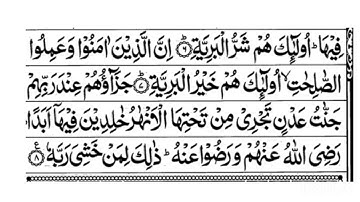 فِيْهَا ؕ اُولٰٓئِكَ هُمْ شَرُّ الْبَرِيَّةِ ؕ﴿۶﴾ اِنَّ الَّذِيْنَ اٰمَنُوْا وَعَمِلُوا
الصّٰلِحٰتِ ۙ اُولٰٓئِكَ هُمْ خَيْرُ الْبَرِيَّةِ ؕ﴿۷﴾ جَزَآؤُهُمْ عِنْدَ رَبِّهِمْ
جَنّٰتُ عَدْنٍ تَجْرِيْ مِنْ تَحْتِهَا الْاَنْهٰرُ خٰلِدِيْنَ فِيْهَاۤ اَبَدًا ؕ
رَضِيَ اللّٰهُ عَنْهُمْ وَرَضُوْا عَنْهُ ؕ ذٰلِكَ لِمَنْ خَشِيَ رَبَّهٗ ﴿۸﴾